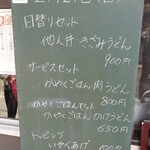 日替りセット
他人丼 きざみうどん
900円
サービスセット
かやくごはん 肉うどん
800円
かやくごはんセット
かやくごはん かけうどん
650円
トッピング
いそべあげ 100円